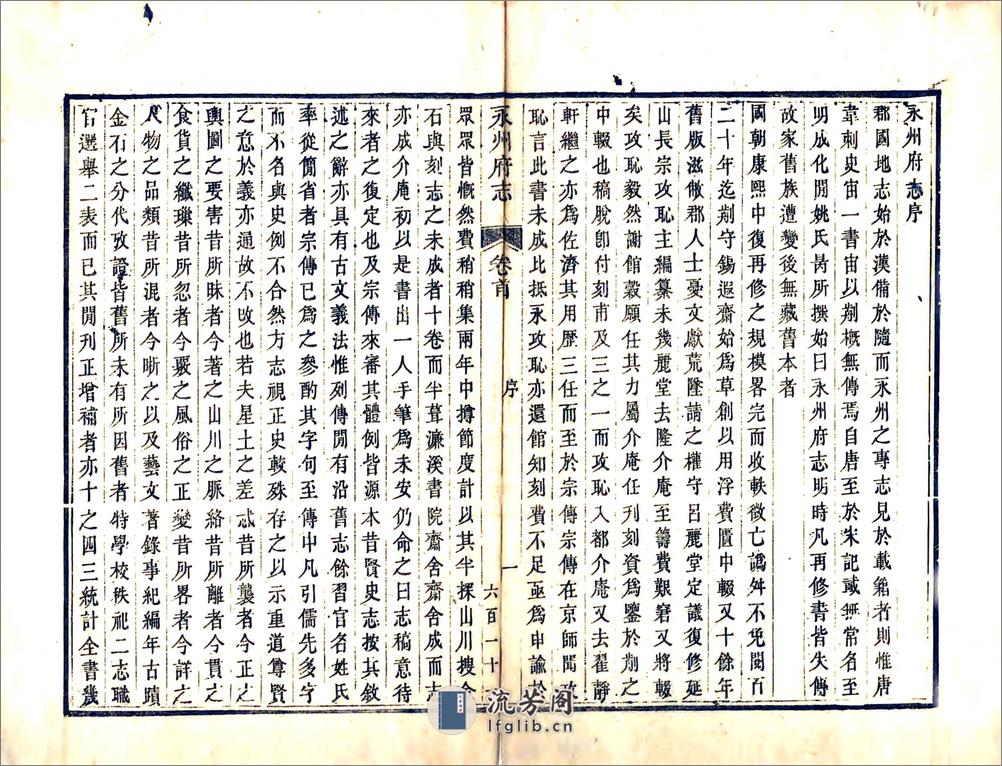 永州府志序
郡國地志始於漢備於隨而永州之專志見於載籍者則惟唐
韋刺史宙一書宙以剏概無傳焉自唐至於宋記乘無常名至
明成化間姚氏昺所撰始曰永州府志明時凡再修書皆失傳
故家舊族遭變後無藏舊本者
國朝康熙中復再修之規模畧完而收軼徵亡譌舛不免閱百
二十年迄剏守錫遐齋始為草創以用浮費匱中輟又十餘年
舊版滋敝郡人士憂文獻荒墜請之權守呂麗堂定議復修延
山長宗玫恥主編纂未幾麗堂去隆介庵至籌費艱窘又將輟
矣玫恥毅然謝館穀願任其力屬介庵任刊刻資為鑒於前之
中輟也稿脫卽付刻甫及三之一而玫恥入都介庵又去翟靜
軒繼之亦為佐濟其用歷三任而至於宗傳宗傳在京師聞玫
恥言此書未成比抵永玫恥亦還館知刻費不足亟為申諭於
永州府志
卷首
序
一
六百一十
眾眾皆慨然費稍稍集兩年中撙節度計以其半探山川搜金
石與刻志之未成者十卷而半葺濂溪書院齋舍齋舍成而志
亦成介庵初以是書出一人手筆為未安仍命之曰志稿意待
來者之復定也及宗傳來審其體例皆源本昔賢史志按其敘
述之辭亦具有古文義法惟列傳間有沿舊志餘習官名姓氏
率從簡省者宗傳已為之參酌其字句至傳中凡引儒先多字
而不名與史例不合然方志視正史較殊存之以示重道尊賢
之意於義亦通故不改也若夫星土之差忒昔所襲者今正之
輿圖之要害昔所昧者今著之山川之脈絡昔所離者今貫之
食貨之纖瑣昔所忽者今覈之風俗之正變昔所畧者今詳之
人物之品類昔所混者今晰之以及藝文著錄事紀編年古蹟
金石之分代攷證皆舊所未有所因舊者特學校秩祀二志職
官選舉二表而已其間刊正增補者亦十之四三統計全書幾
流芳阁
lfglib.cn